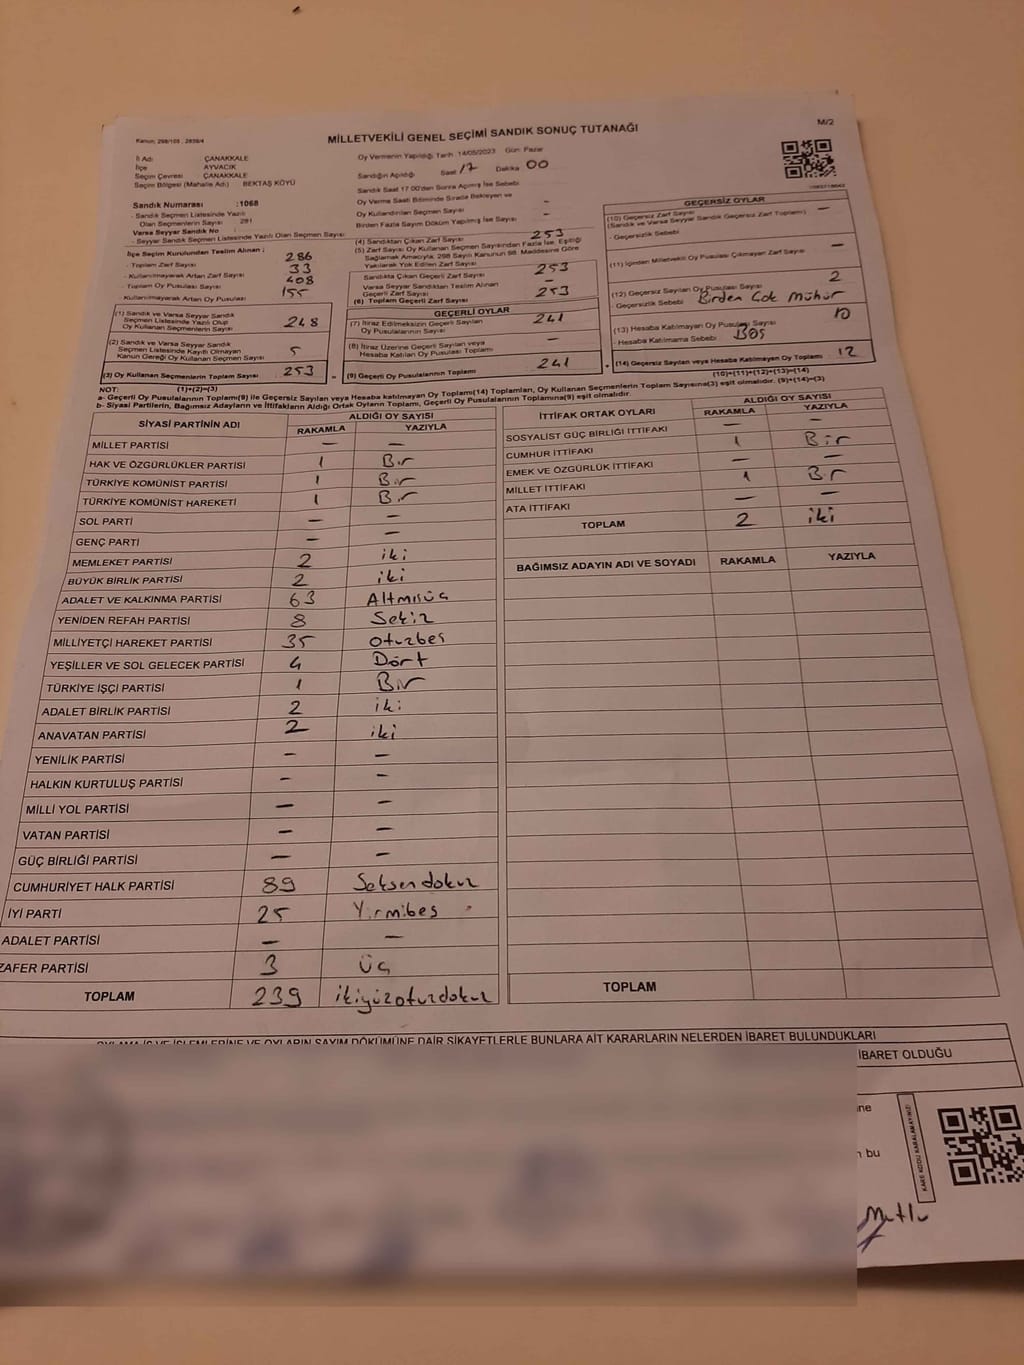 Kanun; 298/105 , 2839/4
MİLLETVEKİLİ GENEL SEÇİMİ SANDIK SONUÇ TUTANAĞI
M/2
İl Adı : ÇANAKKALE
İlçe : AYVACIK
Seçim Çevresi : ÇANAKKALE
Seçim Bölgesi (Mahalle Adı) : BEKTAŞ KÖYÜ
Sandık Numarası :1068
- Sandık Seçmen Listesinde Yazılı
Olan Seçmenlerin Sayısı : 281
Varsa Seyyar Sandık No :
- Seyyar Sandık Seçmen Listesinde Yazılı Olan Seçmen Sayısı:
İlçe Seçim Kurulundan Teslim Alınan ;
- Toplam Zarf Sayısı 286
- Kullanılmayarak Artan Zarf Sayısı 33
- Toplam Oy Pusulası Sayısı 408
- Kullanılmayarak Artan Oy Pusulası 155
(1) Sandık ve Varsa Seyyar Sandık
Seçmen Listesinde Yazılı Olup
Oy Kullanan Seçmenlerin Sayısı 248
(2) Sandık ve Varsa Seyyar Sandık
Seçmen Listesinde Kayıtlı Olmayan
Kanun Gereği Oy Kullanan Seçmen Sayısı 5
(3) Oy Kullanan Seçmenlerin Toplam Sayısı 253
(1)+(2)=(3)
Oy Vermenin Yapıldığı Tarih :14/05/2023 Gün: Pazar
Sandığın Açıldığı Saat 17 Dakika 00
Sandık Saat 17.00'den Sonra Açılmış İse Sebebi
Oy Verme Saati Bitiminde Sırada Bekleyen ve
Oy Kullandırılan Seçmen Sayısı -
Birden Fazla Sayım Döküm Yapılmış İse Sayısı -
(4) Sandıktan Çıkan Zarf Sayısı 253
(5) Zarf Sayısı Oy Kullanan Seçmen Sayısından Fazla İse, Eşitliği
Sağlamak Amacıyla, 298 Sayılı Kanunun 98. Maddesine Göre
Yakılarak Yok Edilen Zarf Sayısı -
Sandıkta Çıkan Geçerli Zarf Sayısı 253
Varsa Seyyar Sandıktan Teslim Alınan
Geçerli Zarf Sayısı -
(6) Toplam Geçerli Zarf Sayısı 253
GEÇERLİ OYLAR
(7) İtiraz Edilmeksizin Geçerli Sayılan
Oy Pusulalarının Sayısı 241
(8) İtiraz Üzerine Geçerli Sayılan veya
Hesaba Katılan Oy Pusulası Toplamı -
(9) Geçerli Oy Pusulalarının Toplamı 241
GEÇERSİZ OYLAR
(10) Geçersiz Zarf Sayısı
(Sandık ve Varsa Seyyar Sandık Geçersiz Zarf Toplamı) -
- Geçersizlik Sebebi
(11) İçinden Milletvekili Oy Pusulası Çıkmayan Zarf Sayısı -
(12) Geçersiz Sayılan Oy Pusulası Sayısı 2
Geçersizlik Sebebi Birden Çok Mühür
(13) Hesaba Katılmayan Oy Pusulası Sayısı 10
- Hesaba Katılmama Sebebi : Boş
(14) Geçersiz Sayılan veya Hesaba Katılmayan Oy Toplamı 12
(10)+(11)+(12)+(13)=(14)
NOT:
a- Geçerli Oy Pusulalarının Toplamı(9) ile Geçersiz Sayılan veya Hesaba katılmayan Oy Toplamı(14) Toplamları, Oy Kullanan Seçmenlerin Toplam Sayısına(3) eşit olmalıdır. (9)+(14)=(3)
b- Siyasi Partilerin, Bağımsız Adayların ve İttifakların Aldığı Ortak Oyların Toplamı, Geçerli Oy Pusulalarının Toplamına(9) eşit olmalıdır.
SİYASİ PARTİNİN ADI ALDIĞI OY SAYISI
RAKAMLA YAZIYLA
MİLLET PARTİSİ - -
HAK VE ÖZGÜRLÜKLER PARTİSİ 1 Bir
TÜRKİYE KOMÜNİST PARTİSİ 1 Bir
TÜRKİYE KOMÜNİST HAREKETİ 1 Bir
SOL PARTİ - -
GENÇ PARTİ - -
MEMLEKET PARTİSİ 2 iki
BÜYÜK BİRLİK PARTİSİ 2 iki
ADALET VE KALKINMA PARTİSİ 63 Altmışüç
YENİDEN REFAH PARTİSİ 8 Sekiz
MİLLİYETÇİ HAREKET PARTİSİ 35 otuzbeş
YEŞİLLER VE SOL GELECEK PARTİSİ 4 Dört
TÜRKİYE İŞÇİ PARTİSİ 1 Bir
ADALET BİRLİK PARTİSİ 2 iki
ANAVATAN PARTİSİ 2 iki
YENİLİK PARTİSİ - -
HALKIN KURTULUŞ PARTİSİ - -
MİLLİ YOL PARTİSİ - -
VATAN PARTİSİ - -
GÜÇ BİRLİĞİ PARTİSİ - -
CUMHURİYET HALK PARTİSİ 89 Seksendokuz
İYİ PARTİ 25 Yirmibeş
ADALET PARTİSİ - -
ZAFER PARTİSİ 3 üç
TOPLAM 239 ikiyüzotuzdokuz
İTTİFAK ORTAK OYLARI ALDIĞI OY SAYISI
RAKAMLA YAZIYLA
SOSYALİST GÜÇ BİRLİĞİ İTTİFAKI - -
CUMHUR İTTİFAKI 1 Bir
EMEK VE ÖZGÜRLÜK İTTİFAKI - -
MİLLET İTTİFAKI 1 Bir
ATA İTTİFAKI - -
TOPLAM 2 iki
BAĞIMSIZ ADAYIN ADI VE SOYADI RAKAMLA YAZIYLA
TOPLAM
OYLAMA İŞ VE İŞLEMLERİNE VE OYLARIN SAYIM DÖKÜMÜNE DAİR ŞİKAYETLERLE BUNLARA AİT KARARLARIN NELERDEN İBARET BULUNDUKLARI
İBARET OLDUĞU
ine
n bu
KARE KODU KARALAMAYINIZ!
Mutlu